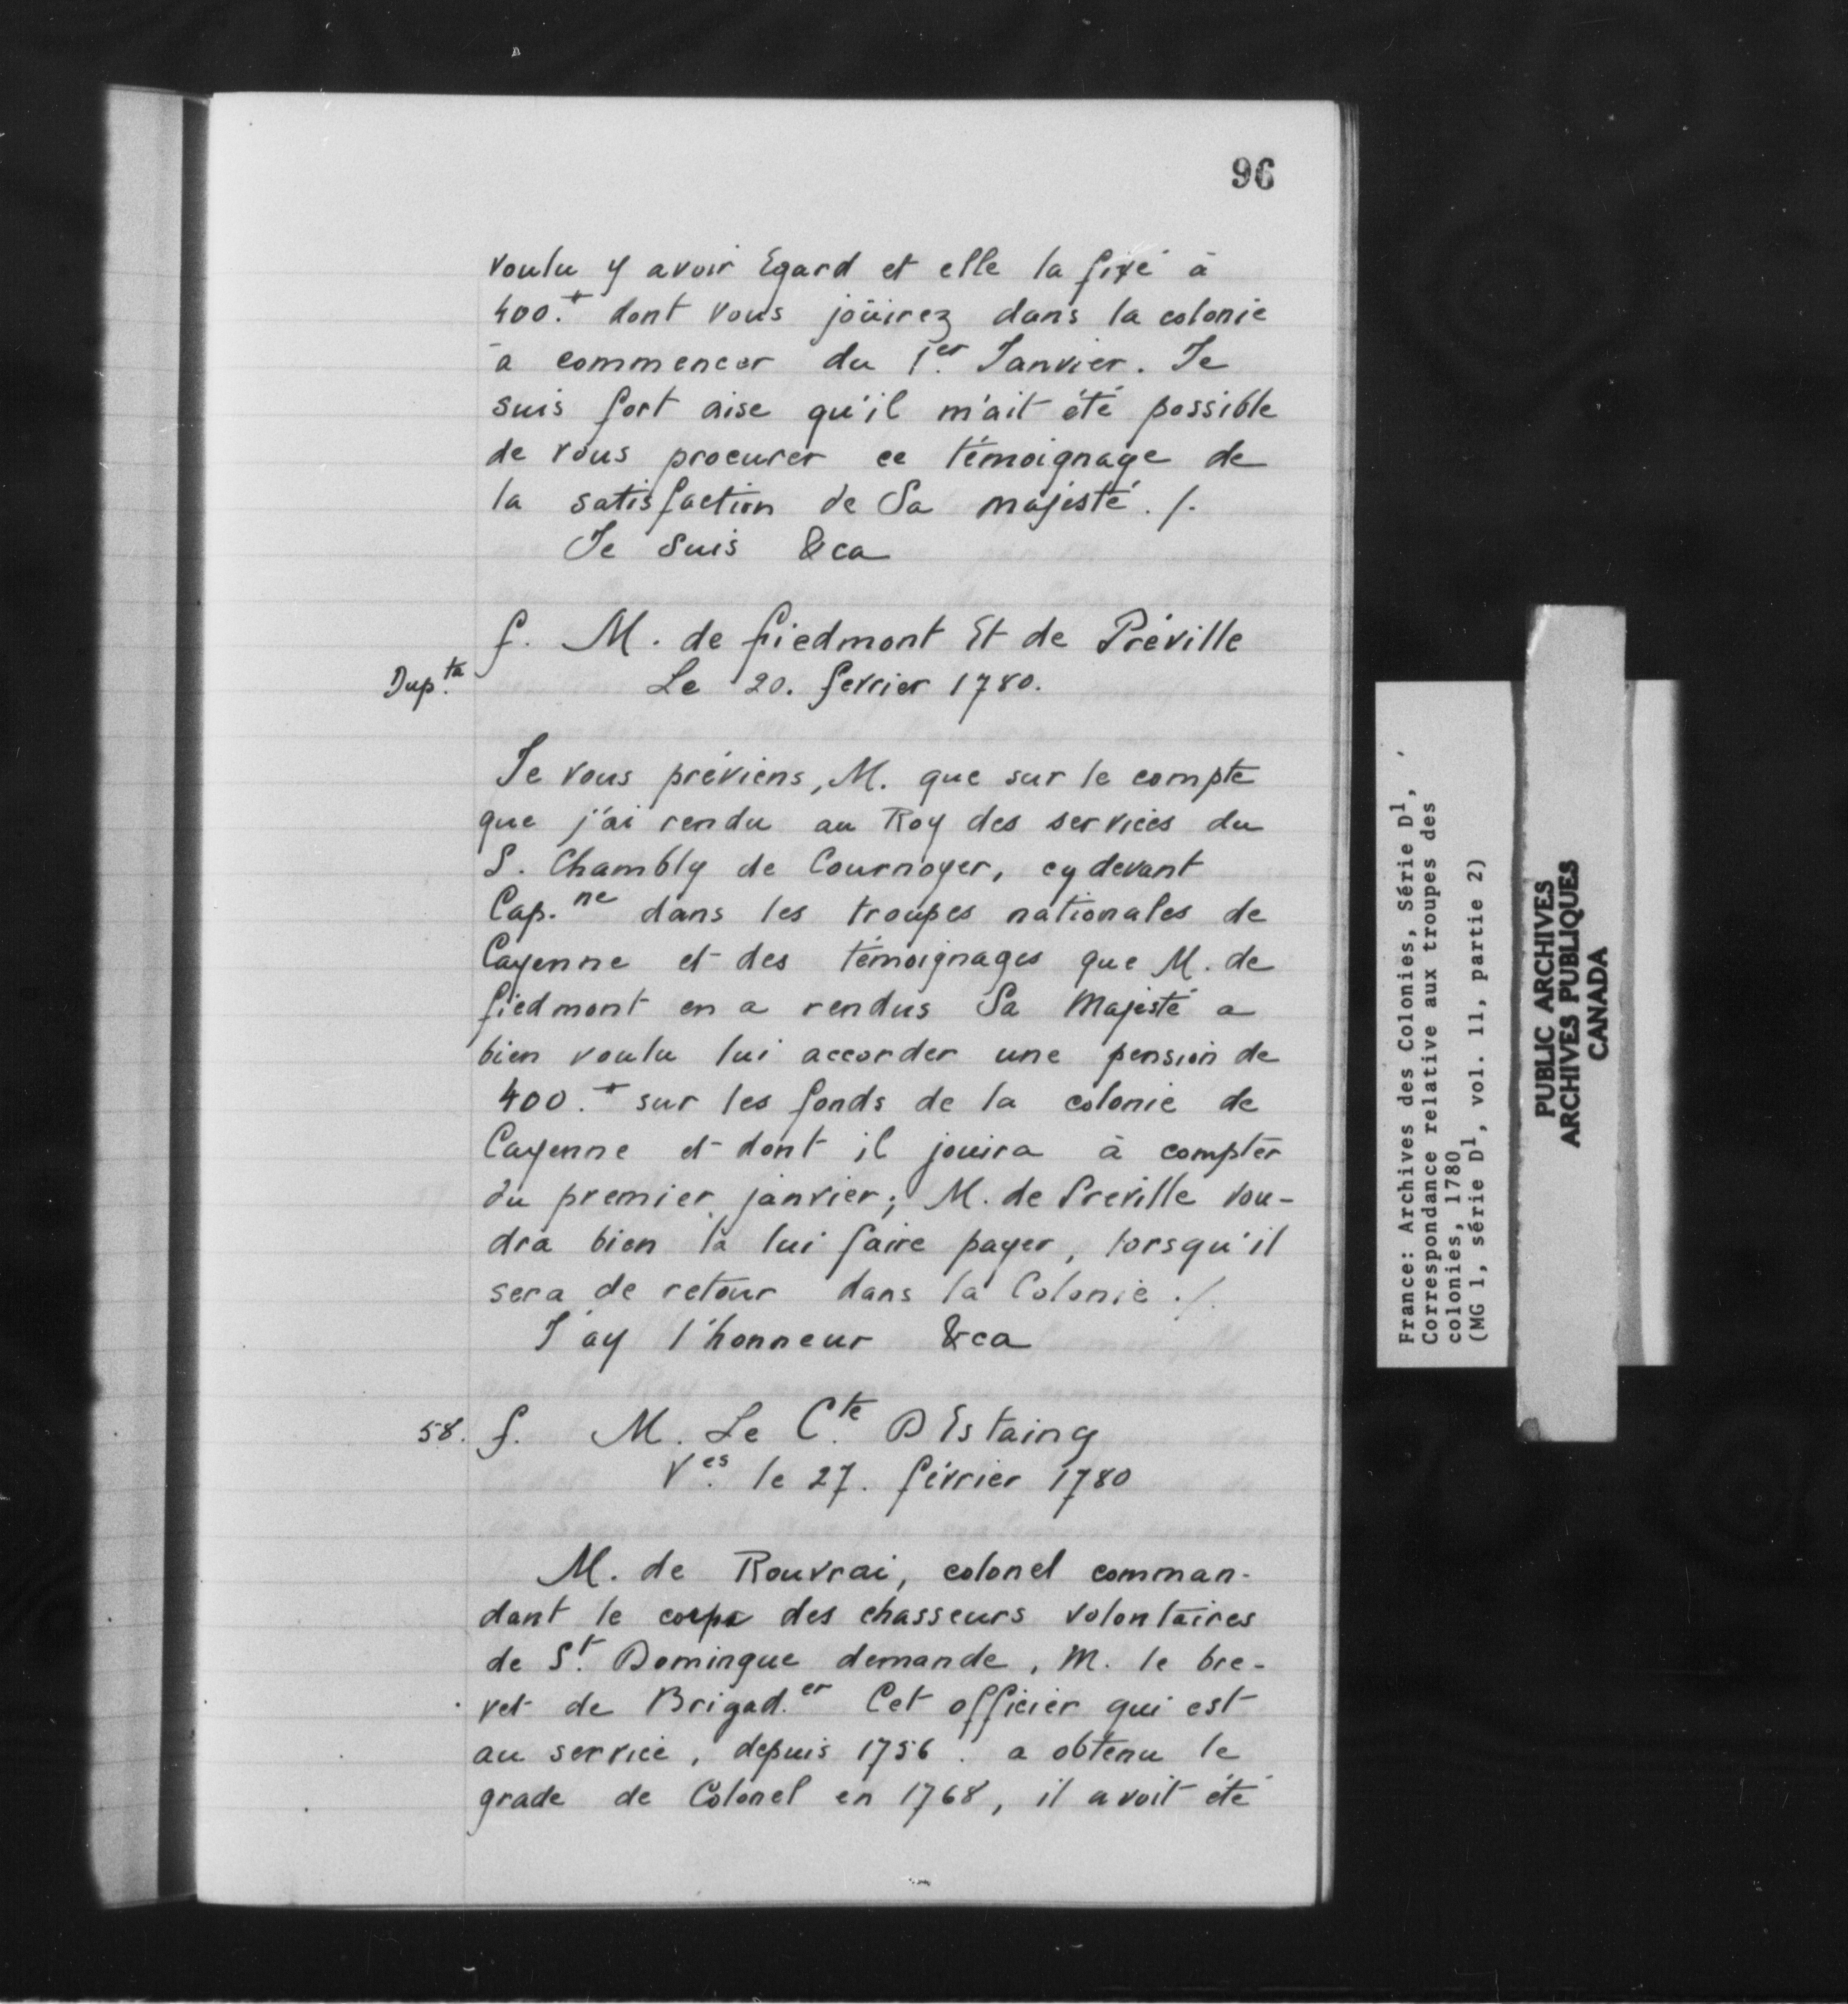 96
voulu y avoir Egard et elle la fixé à
400.ᵗ dont vous joüirez dans la colonie
à commencer du 1.er Janvier. Je
suis fort aise qu'il m'ait été possible
de vous procurer ce témoignage de
la satisfaction de Sa majesté ./.
Je Suis &ca
f. M. de fiedmont Et de Préville
Dup.ta
Le 20. fevrier 1780.
Je vous préviens, M. que sur le compte
que j'ai rendu au Roy des services du
S. Chambly de Cournoyer, cy devant
Cap.ne dans les troupes nationales de
Cayenne et des témoignages que M. de
fiedmont en a rendus Sa Majesté a
bien voulu lui accorder une pension de
400.ᵗ sur les fonds de la colonie de
Cayenne et dont il jouira à compter
du premier janvier; M. de Preville vou-
dra bien la lui faire payer, lorsqu'il
sera de retour dans la Colonie ./.
J'ay l'honneur &ca
58. f. M. Le C.te D Estaing
V.es le 27. février 1780
M. de Rouvrai, colonel comman-
dant le corps des chasseurs volontaires
de S.t Domingue demande, M. le bre-
vet de Brigad.er Cet officier qui est
au service, depuis 1756. a obtenu le
grade de Colonel en 1768, il avoit été
France: Archives des Colonies, Série D1,
Correspondance relative aux troupes des
colonies, 1780
(MG 1, série D1, vol. 11, partie 2)
PUBLIC ARCHIVES
ARCHIVES PUBLIQUES
CANADA